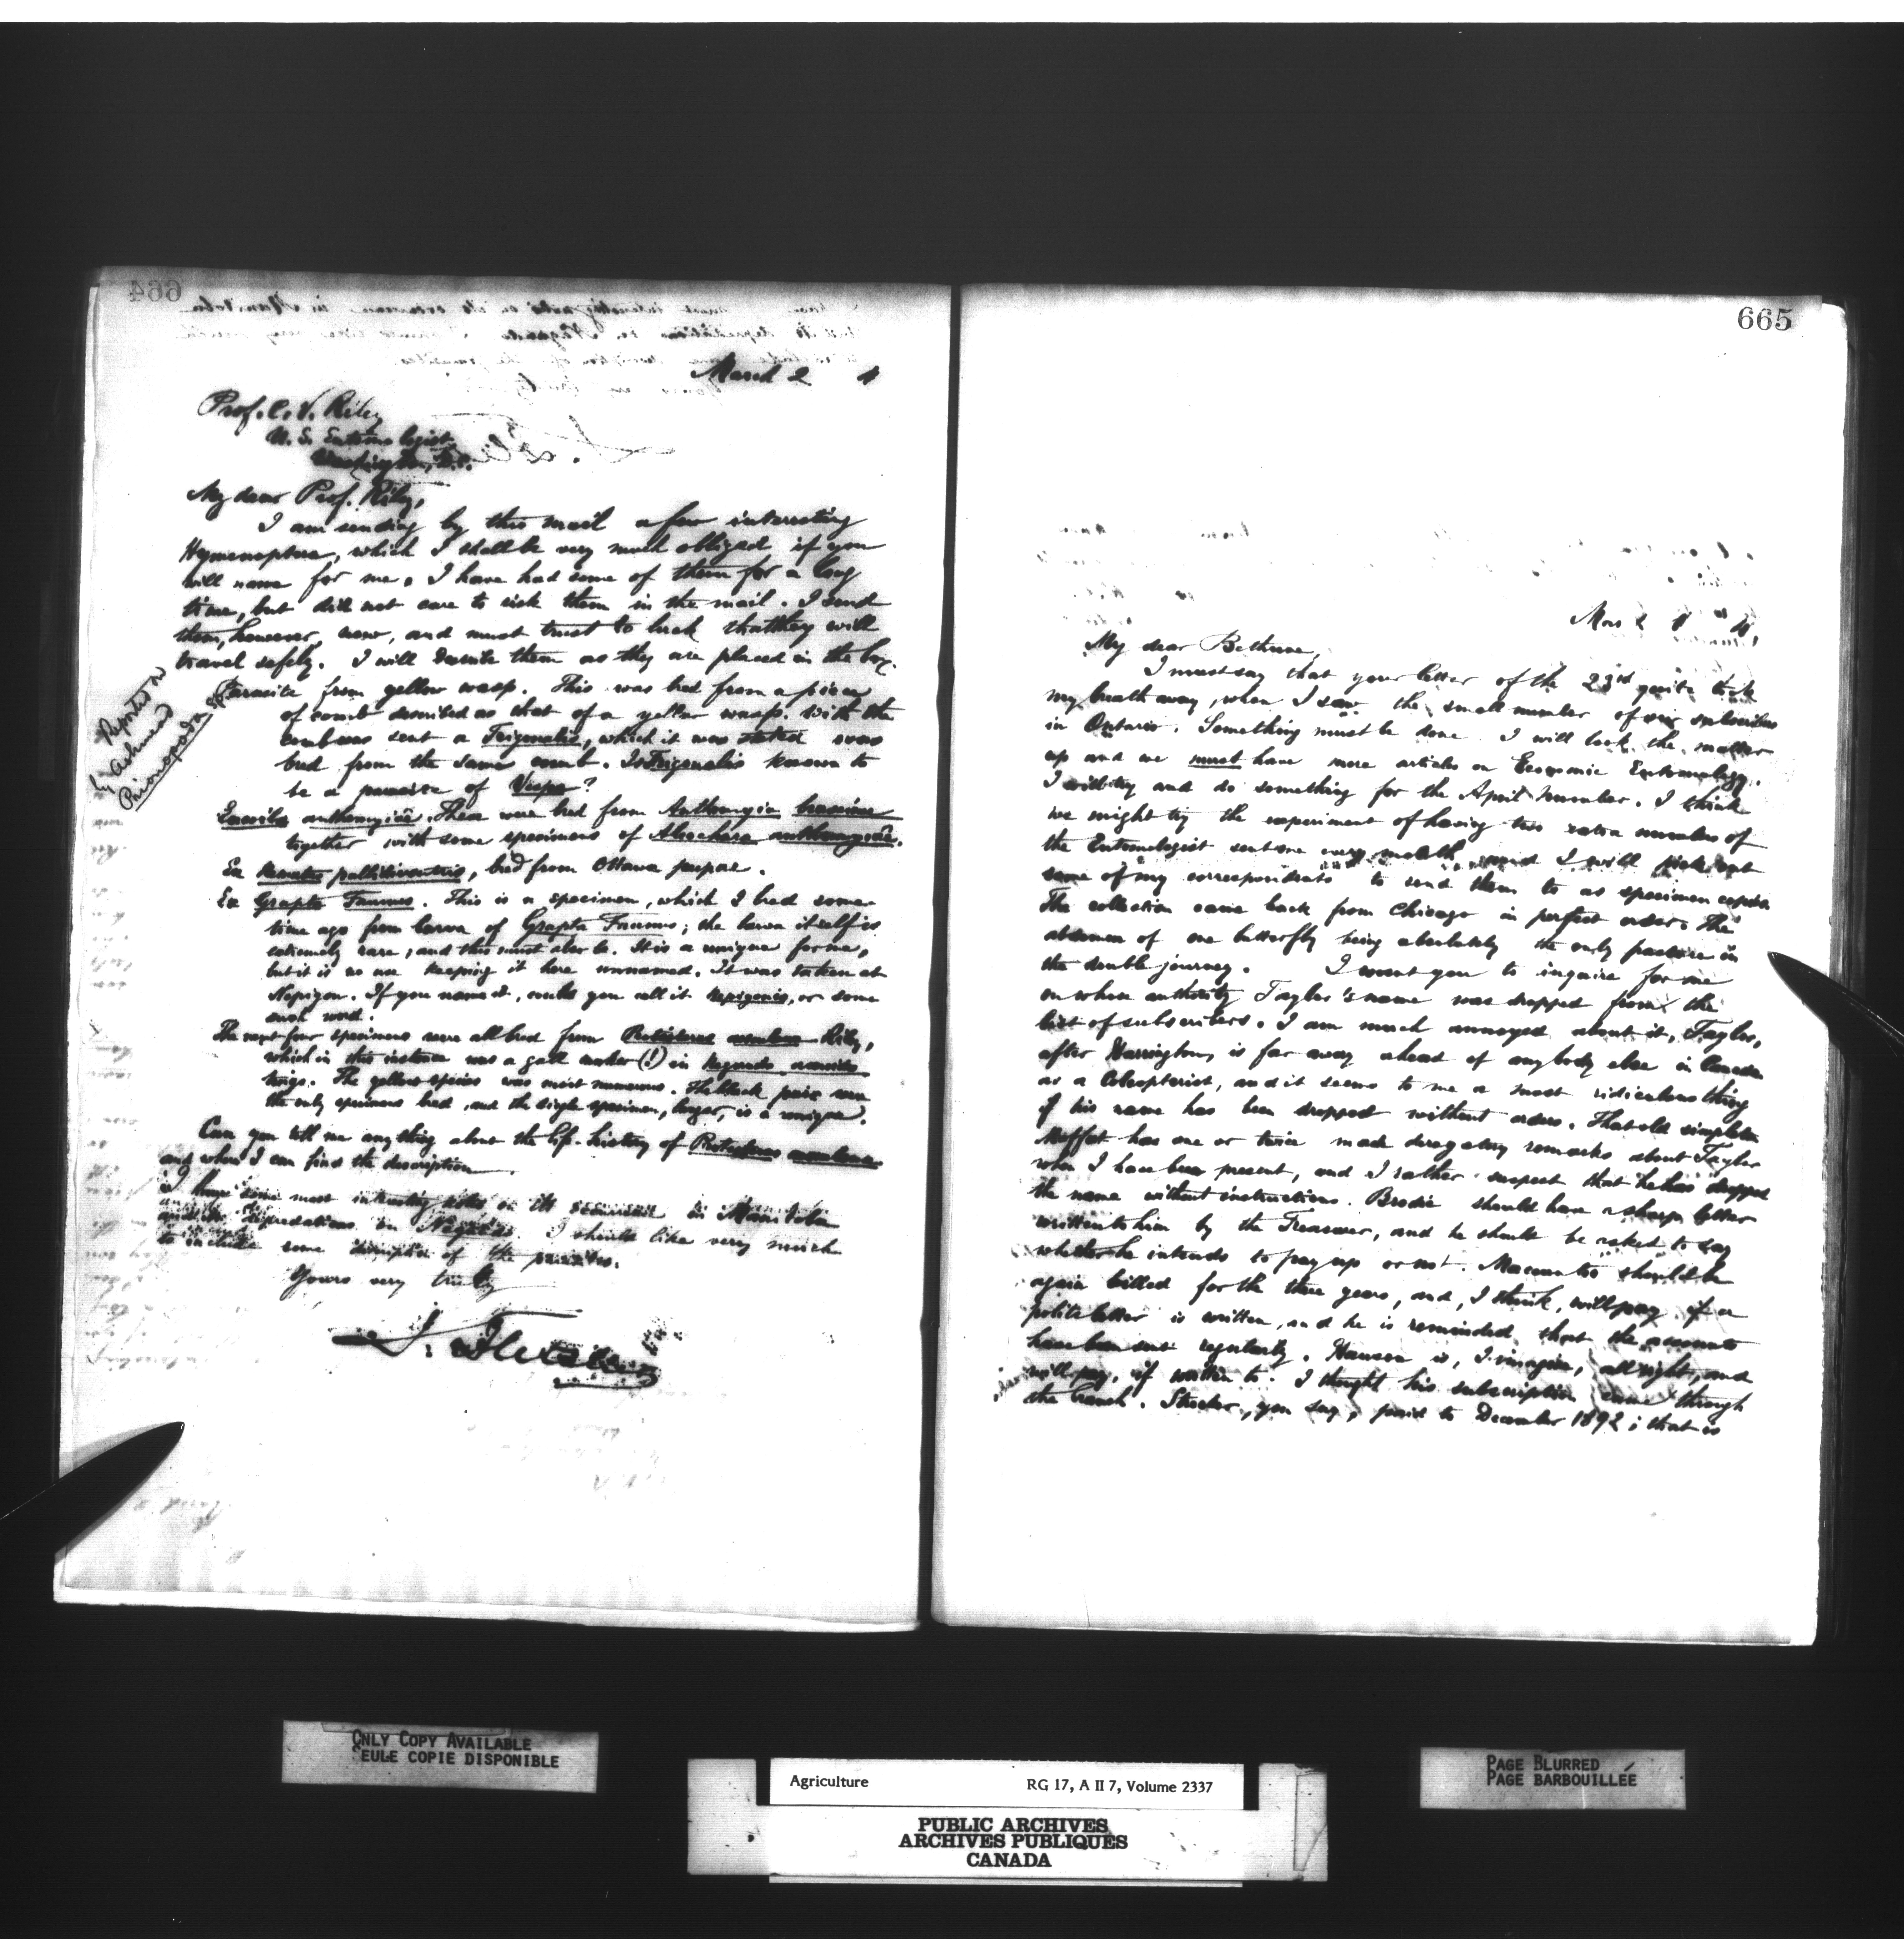 664
March 2 4
Prof. C. V. Riley
U. S. Entomologist
Washington, D.C.
My dear Prof. Riley,
I am sending by this mail a few interesting
Hymenoptera, which I shall be very much obliged if you
will name for me. I have had some of them for a long
time, but did not care to risk them in the mail. I send
them, however, now, and must trust to luck that they will
travel safely. I will describe them as they are placed in the box.
Reported on
by Ashmead
Prionopoda sp.
Parasite from yellow wasp. This was bred from a piece
of comb described as that of a yellow wasp. With the
comb was sent a Trigonalis, which it was stated was
bred from the same comb. Is Trigonalis known to
be a parasite of Vespa?
anthomyiæ. These were bred from Anthomyia brassicae
together with some specimens of Aleochara anthomyiæ.
Ex Nematus pallidiventris, bred from Ottawa pupae.
Ex Grapta Faunus. This is a specimen, which I bred some
time ago from larva of Grapta Faunus; the larva itself is
extremely rare, and this must also be. It is a unique for me,
but it is no use keeping it here unnamed. It was taken at
Nepigon. If you name it, could you call it nepigonis, or some
such word.
The next four specimens were all bred from Proteoteras Riley,
which in this instance was a gall maker (!) in Negundo aceroides
twigs. The yellow species was most numerous. The black pair were
the only specimens bred, and the single specimen, larger, is a unique.
Can you tell me anything about the life-history of Proteoteras
and where I can find the description
I have some most interesting notes on its occurrence in Manitoba
and its depredations on Negundo. I should like very much
to include some description of the parasites.
Yours very truly
J. Fletcher
665
Mar 2 4
My dear Bethune,
I must say that your letter of the 23rd quite took
my breath away, when I saw the small number of our subscribers
in Ontario. Something must be done. I will look the matter
up and we must have more articles on Economic Entomology.
I will try and do something for the April number. I think
we might try the experiment of having two extra numbers of
the Entomologist sent me every month, and I will pick out
some of my correspondents to send them to as specimen copies
The collection came back from Chicago in perfect order. The
abdomen of one butterfly being absolutely the only fracture in
the double journey. I want you to inquire for me
on whose authority Taylor's name was dropped from the
list of subscribers. I am much annoyed about it, Taylor,
after Harrington, is far away ahead of anybody else in Canada
as a Coleopterist, and it seems to me a most ridiculous thing
if his name has been dropped without orders. That old simpleton
Moffat has one or twice made derogatory remarks about Taylor
when I have been present, and I rather suspect that he has dropped
the name without instructions. Brodie should have a sharp letter
written to him by the Treasurer, and he should be asked to say
whether he intends to pay up or not. Macoun too should be
again billed for the three years, and, I think, will pay if a
polite letter is written, and he is reminded that the accounts
have been sent regularly. Hanson is, I imagine, all right, and
will pay, if written to. I thought his subscription came through
the branch. you say, paid to December 1892; that is
ONLY COPY AVAILABLE
SEULE COPIE DISPONIBLE
Agriculture RG 17, A II 7, Volume 2337
PUBLIC ARCHIVES
ARCHIVES PUBLIQUES
CANADA
PAGE BLURRED
PAGE BARBOUILLÉE